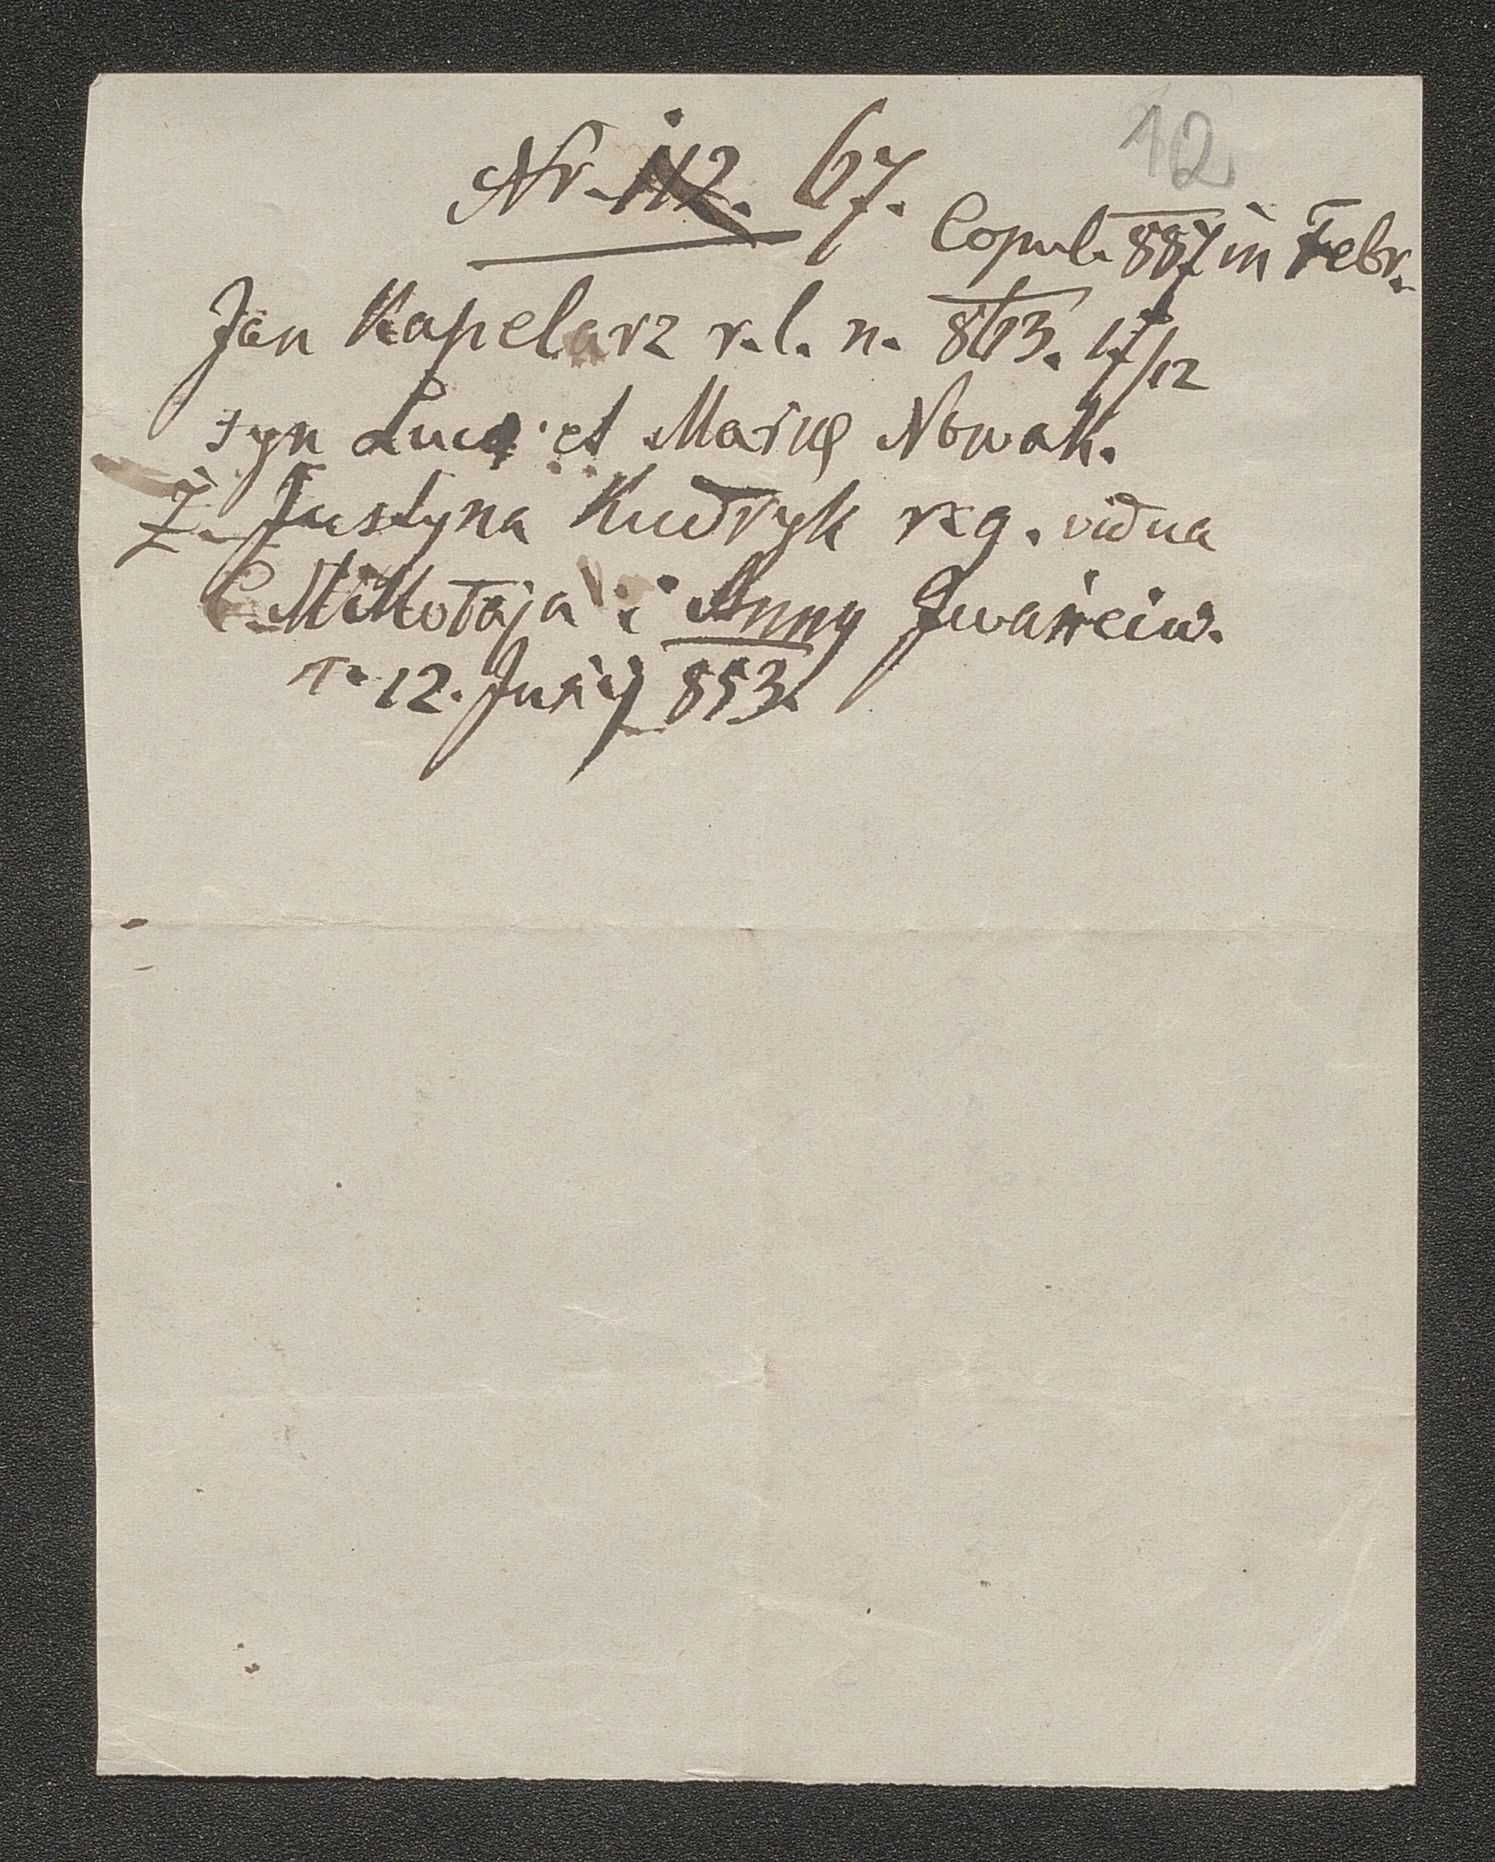 12
Nr. 112. 67.
Copul. 887 in Febr.
Jan Kapelarz r.l. n. 863. 17/12
syn Luca et Maryę Nowak.
Ż. Justyna Kudryk r.g. vidua
C. Mikołaja i Anny Iwańciw.
n. 12. Junij 853.